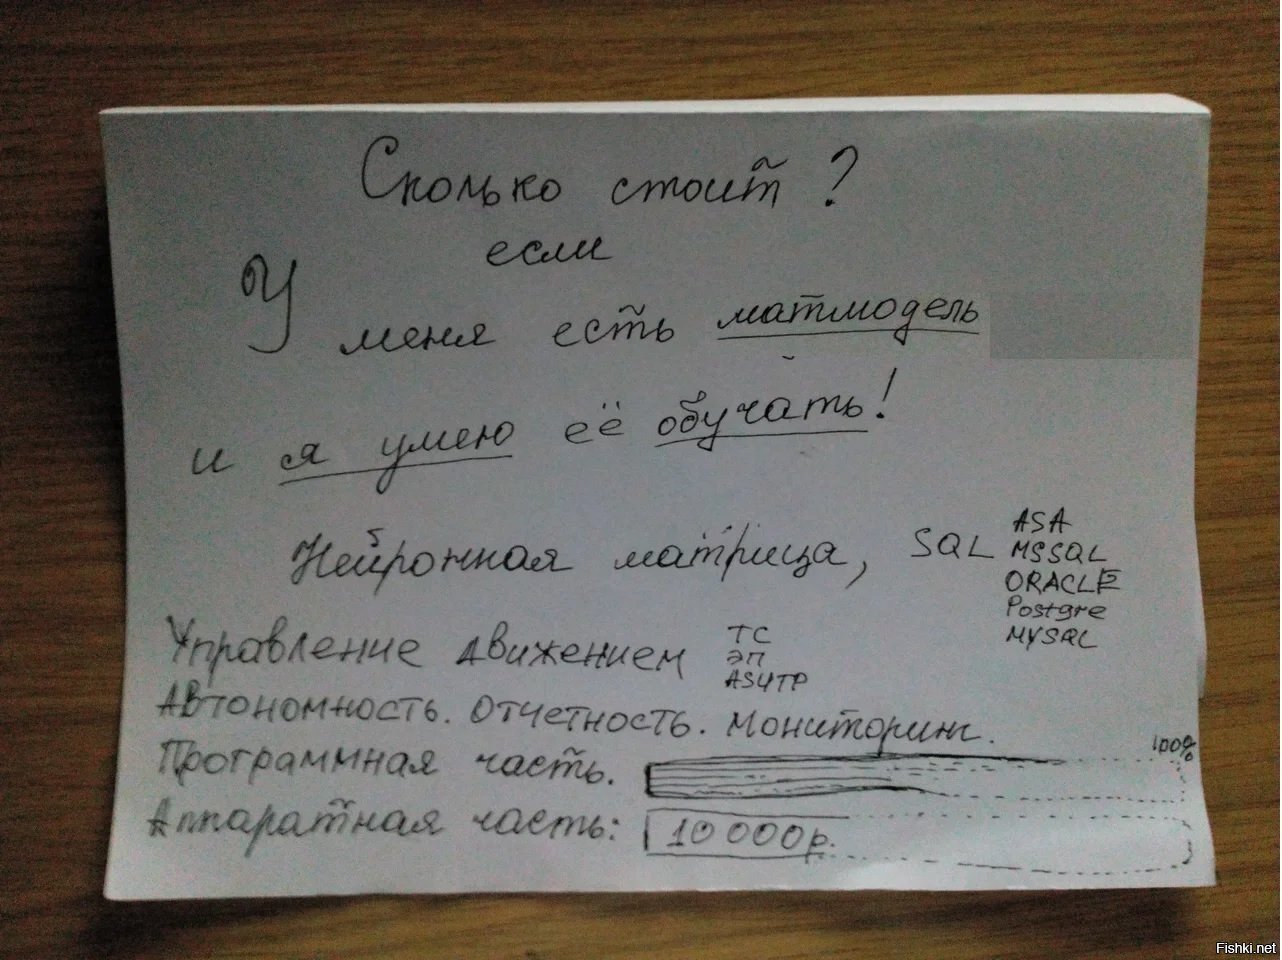 Сколько стоит?
если
У меня есть матмодель
и я умею её обучать!
Нейронная матрица, SQL
ASA
MSSQL
ORACLE
Postgre
MYSQL
Управление движением
ТС
ЭП
АSУТР
Автономность. Отчетность. Мониторинг.
Программная часть.
100%
Аппаратная часть: 10 000р.
Fishki.net